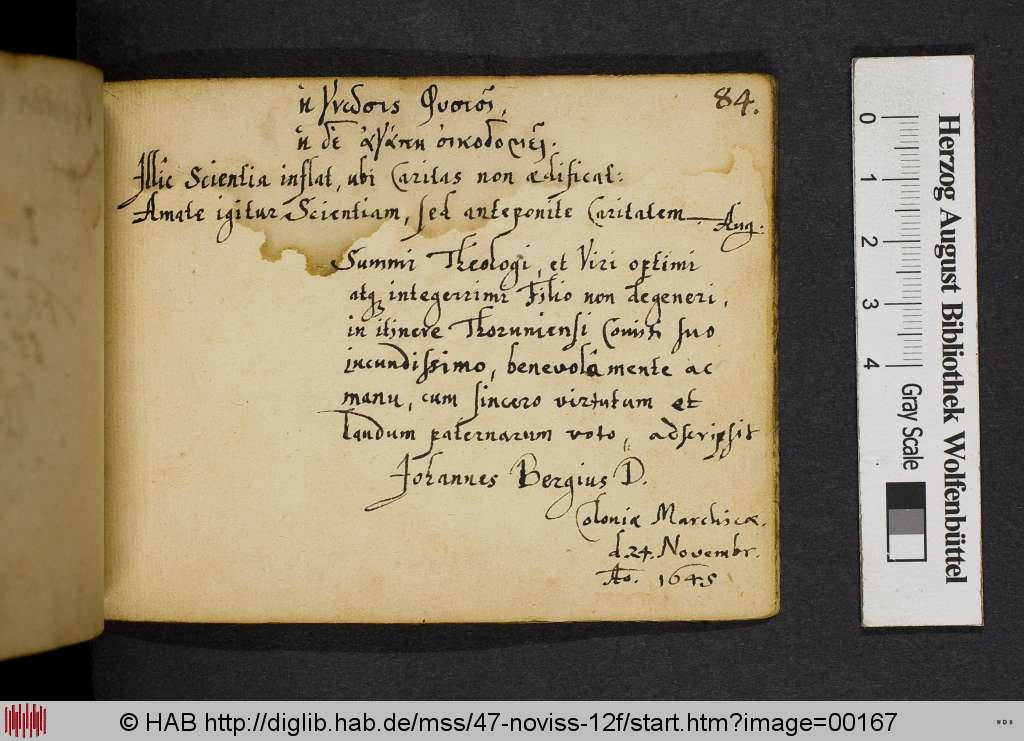 84.
ἡ γνῶσις φυσιοῖ,
ἡ δὲ ἀγάπη οἰκοδομεῖ.
Illic Scientia inflat, ubi Caritas non ædificat:
Amate igitur Scientiam, sed anteponite Caritatem. Aug.
Summi Theologi, et Viri optimi
atq; integerrimi Filio non degeneri,
in itinere Thoruniensi Comiti suo
jucundissimo, benevolâ mente ac
manu, cum sincero virtutum et
laudum paternarum voto, adscripsit
Johannes Bergius D.
Coloniæ Marchicæ.
d. 24. Novembr.
Ao. 1645
0 1 2 3 4
Herzog August Bibliothek Wolfenbüttel
Gray Scale
© HAB http://diglib.hab.de/mss/47-noviss-12f/start.htm?image=00167